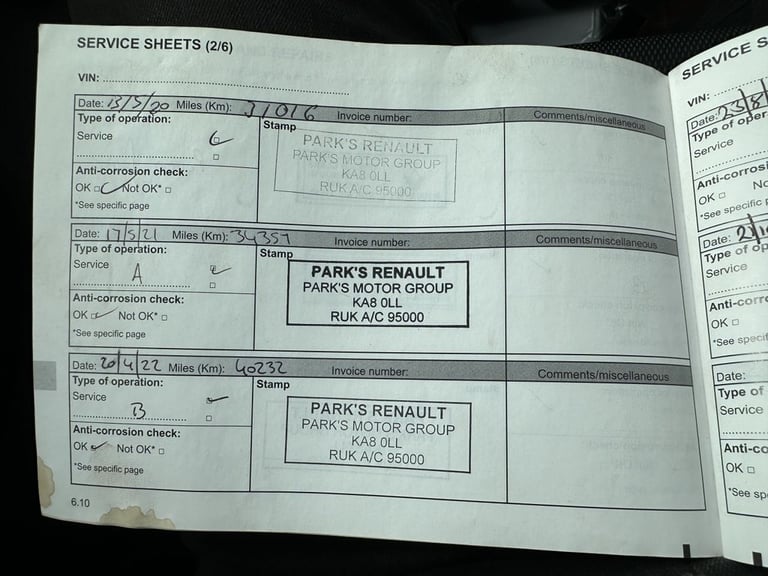 SERVICE SHEETS (2/6)
VIN:
Date: 13/5/20 Miles (Km): 31016 Invoice number: Comments/miscellaneous
Type of operation:
Service
Stamp
PARK'S RENAULT
PARK'S MOTOR GROUP
KA8 0LL
RUK A/C 95000
Anti-corrosion check:
OK □ Not OK* □
*See specific page
Date: 17/5/21 Miles (Km): 34357 Invoice number: Comments/miscellaneous
Type of operation:
Service
A
Stamp
PARK'S RENAULT
PARK'S MOTOR GROUP
KA8 0LL
RUK A/C 95000
Anti-corrosion check:
OK □ Not OK* □
*See specific page
Date: 20/4/22 Miles (Km): 40232 Invoice number: Comments/miscellaneous
Type of operation:
Service
B
Stamp
PARK'S RENAULT
PARK'S MOTOR GROUP
KA8 0LL
RUK A/C 95000
Anti-corrosion check:
OK □ Not OK* □
*See specific page
6.10
SERVICE S
VIN:
Date: 23/8/
Type of oper
Service
Anti-corrosi
OK □ No
*See specific
Date:
Type of op
Service
Anti-corro
OK □
*See specif
Date:
Type of
Service
Anti-co
OK □
*See sp